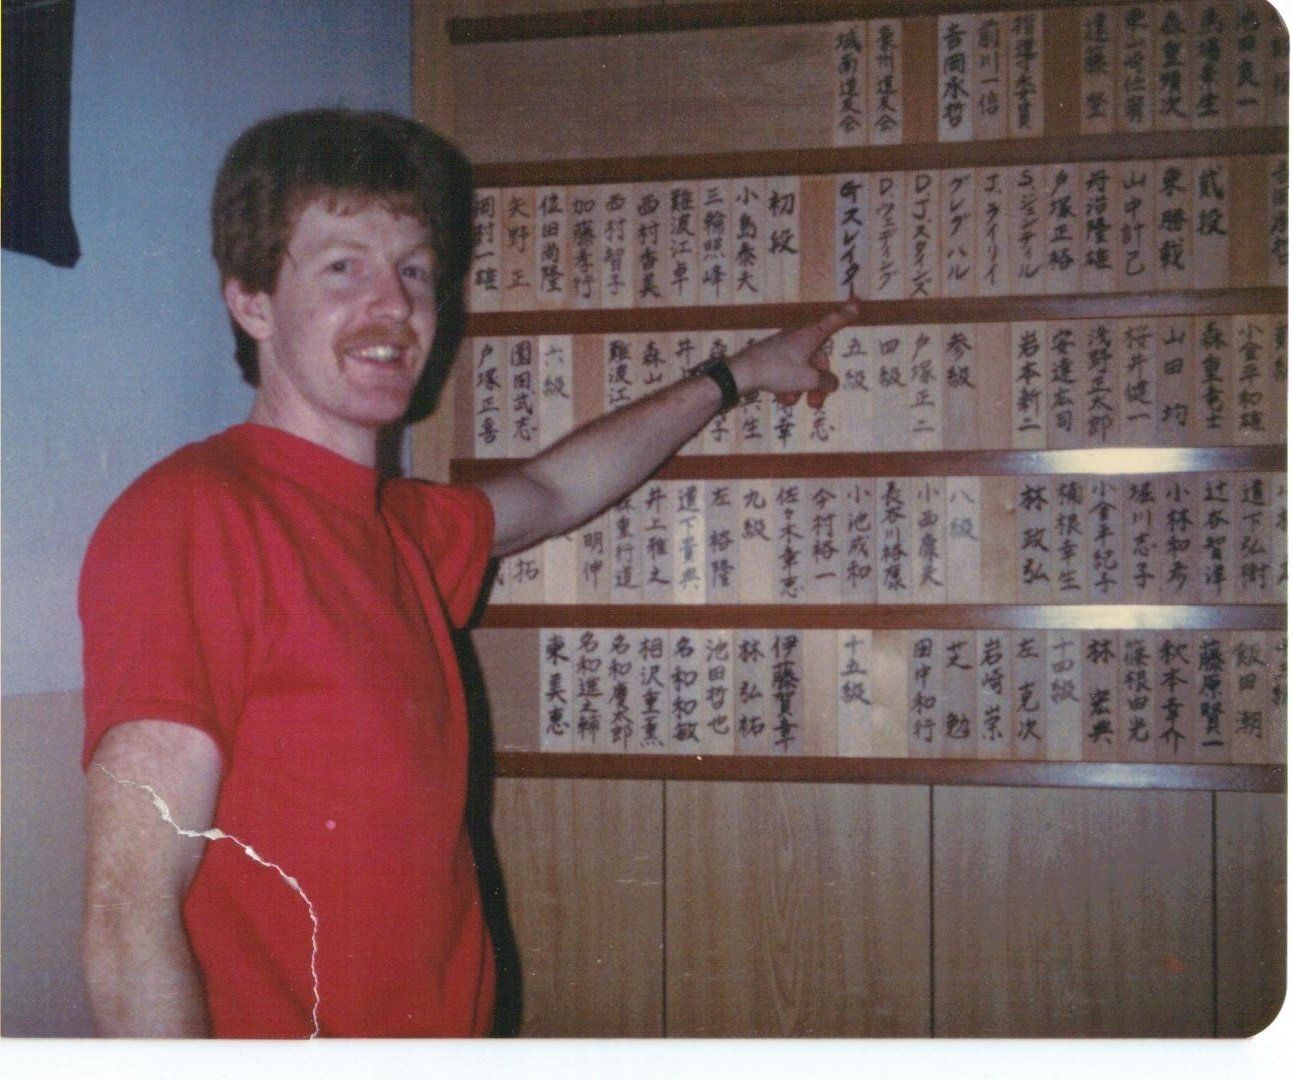 池田良一
森重晴次
遠藤 堅
指導委員
前川一倍
吉岡承哲
泉州道友会
城南道友会
弐段
東 勝哉
山中計己
丹治隆雄
戸塚正裕
S.ジェンティル
J.ライリイ
グレグ ハル
D.J.スタインズ
D.ウェディング
Gスレイター
初段
小島泰夫
三輪照峰
難波江卓
西村香美
西村智子
加藤孝行
位田尚隆
矢野 正
岡村一雄
小金平和雄
森重竜士
山田 均
桜井健一
浅野正太郎
安達宏司
岩本新二
参級
戸塚正二
四級
五級
難波江
森山
六級
園田武志
戸塚正善
道下弘樹
辻谷智洋
小林和彦
堀川志子
小金平紀子
楠根幸生
林 政弘
八級
小西康夫
小池成和
今村裕一
佐々木幸志
九級
左 格隆
道下貴典
井上雅之
森重行道
明伸
拓
飯田 潮
藤原賢一
秋本幸介
篠根田光
林 宏典
十四級
左 克次
岩崎 崇
芝 勉
田中和行
十五級
伊藤賀章
林 弘祐
池田哲也
名和和敏
相沢重薫
名和慶太郎
名和進之輔
東 美恵